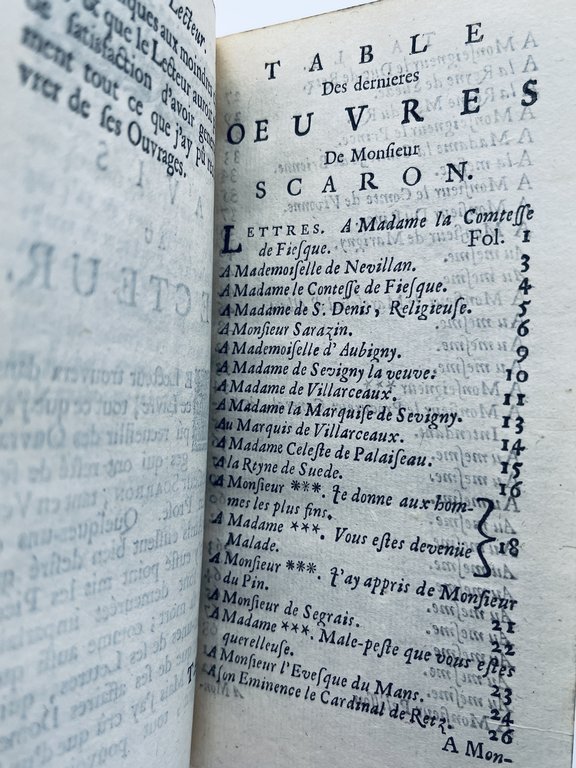 Lecteur.
iques aux moindres
& que le Lecteur auroit
de satisfaction d'avoir
ment tout ce que j'ay pû
vrer de ses Ouvrages.
TABLE
Des dernieres
OEUVRES
De Monsieur
SCARON.
LETTRES. A Madame la Comtesse
de Fiesque. Fol. 1
A Mademoiselle de Nevillan. 3
A Madame le Contesse de Fiesque. 4
A Madame de S. Denis, Religieuse. 5
A Monsieur Sarazin. 6
A Mademoiselle d'Aubigny. 9
A Madame de Sevigny la veuve. 10
A Madame de Villarceaux. 11
A Madame la Marquise de Sevigny. 13
Au Marquis de Villarceaux. 14
A Madame Celeste de Palaiseau. 15
A la Reyne de Suede. 16
A Monsieur ***. Je donne aux hom-
mes les plus fins.
A Madame ***. Vous estes devenue 18
Malade.
A Monsieur ***. J'ay appris de Monsieur
du Pin. 21
A Monsieur de Segrais. 22
A Madame ***. Male-peste que vous estes
querelleuse. 23
A Monsieur l'Evesque du Mans. 24
A son Eminence le Cardinal de Retz. 26
A Mon-